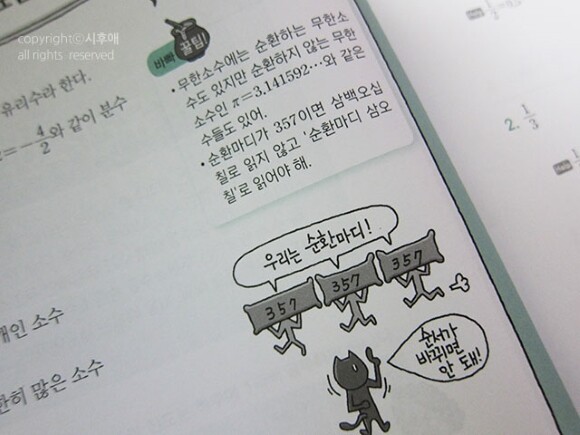 copyrightⓒ시후애
all rights reserved
유리수라 한다.
=-4/2와 같이 분수
바짝 꿀팁!
•무한소수에는 순환하는 무한소
수도 있지만 순환하지 않는 무한
소수인 π=3.141592…와 같은
수들도 있어.
•순환마디가 357이면 삼백오십
칠로 읽지 않고 '순환마디 삼오
칠'로 읽어야 해.
우리는 순환마디!
357 357 357
순서가
바뀌면
안 돼!
개인 소수
많은 소수
2. 1/3